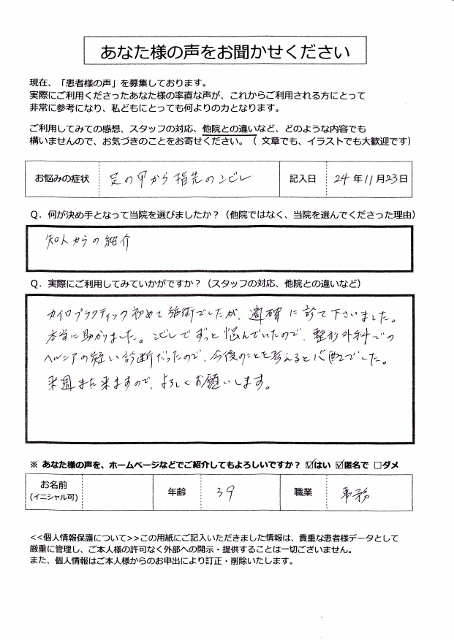 あなた様の声をお聞かせください
現在、「患者様の声」を募集しております。
実際にご利用くださったあなた様の率直な声が、これからご利用される方にとって
非常に参考になり、私どもにとっても何よりの力となります。
ご利用してみての感想、スタッフの対応、他院との違いなど、どのような内容でも
構いませんので、お気づきのことをお寄せください。（ 文章でも、イラストでも大歓迎です）
お悩みの症状 足の甲から指先のシビレ 記入日 24年11月23日
Ｑ．何が決め手となって当院を選びましたか？（他院ではなく、当院を選んでくださった理由）
知人からの紹介
Ｑ．実際にご利用してみていかがですか？（スタッフの対応、他院との違いなど）
カイロプラクティック初めて施術でしたが、適確に診て下さいました。
本当に助かりました。シビレでずっと悩んでいたので、整形外科での
ヘルニアの疑い診断だったので、今後のことを考えると心配でした。
来週また来ますので、よろしくお願いします。
※ あなた様の声を、ホームページなどでご紹介してもよろしいですか？ ☑はい ☑匿名で □ダメ
お名前
(イニシャル可)
年齢 39 職業 事務
<<個人情報保護について>>この用紙にご記入いただきました情報は、貴重な患者様データとして
厳重に管理し、ご本人様の許可なく外部への開示・提供することは一切ございません。
また、個人情報はご本人様からのお申出により訂正・削除いたします。